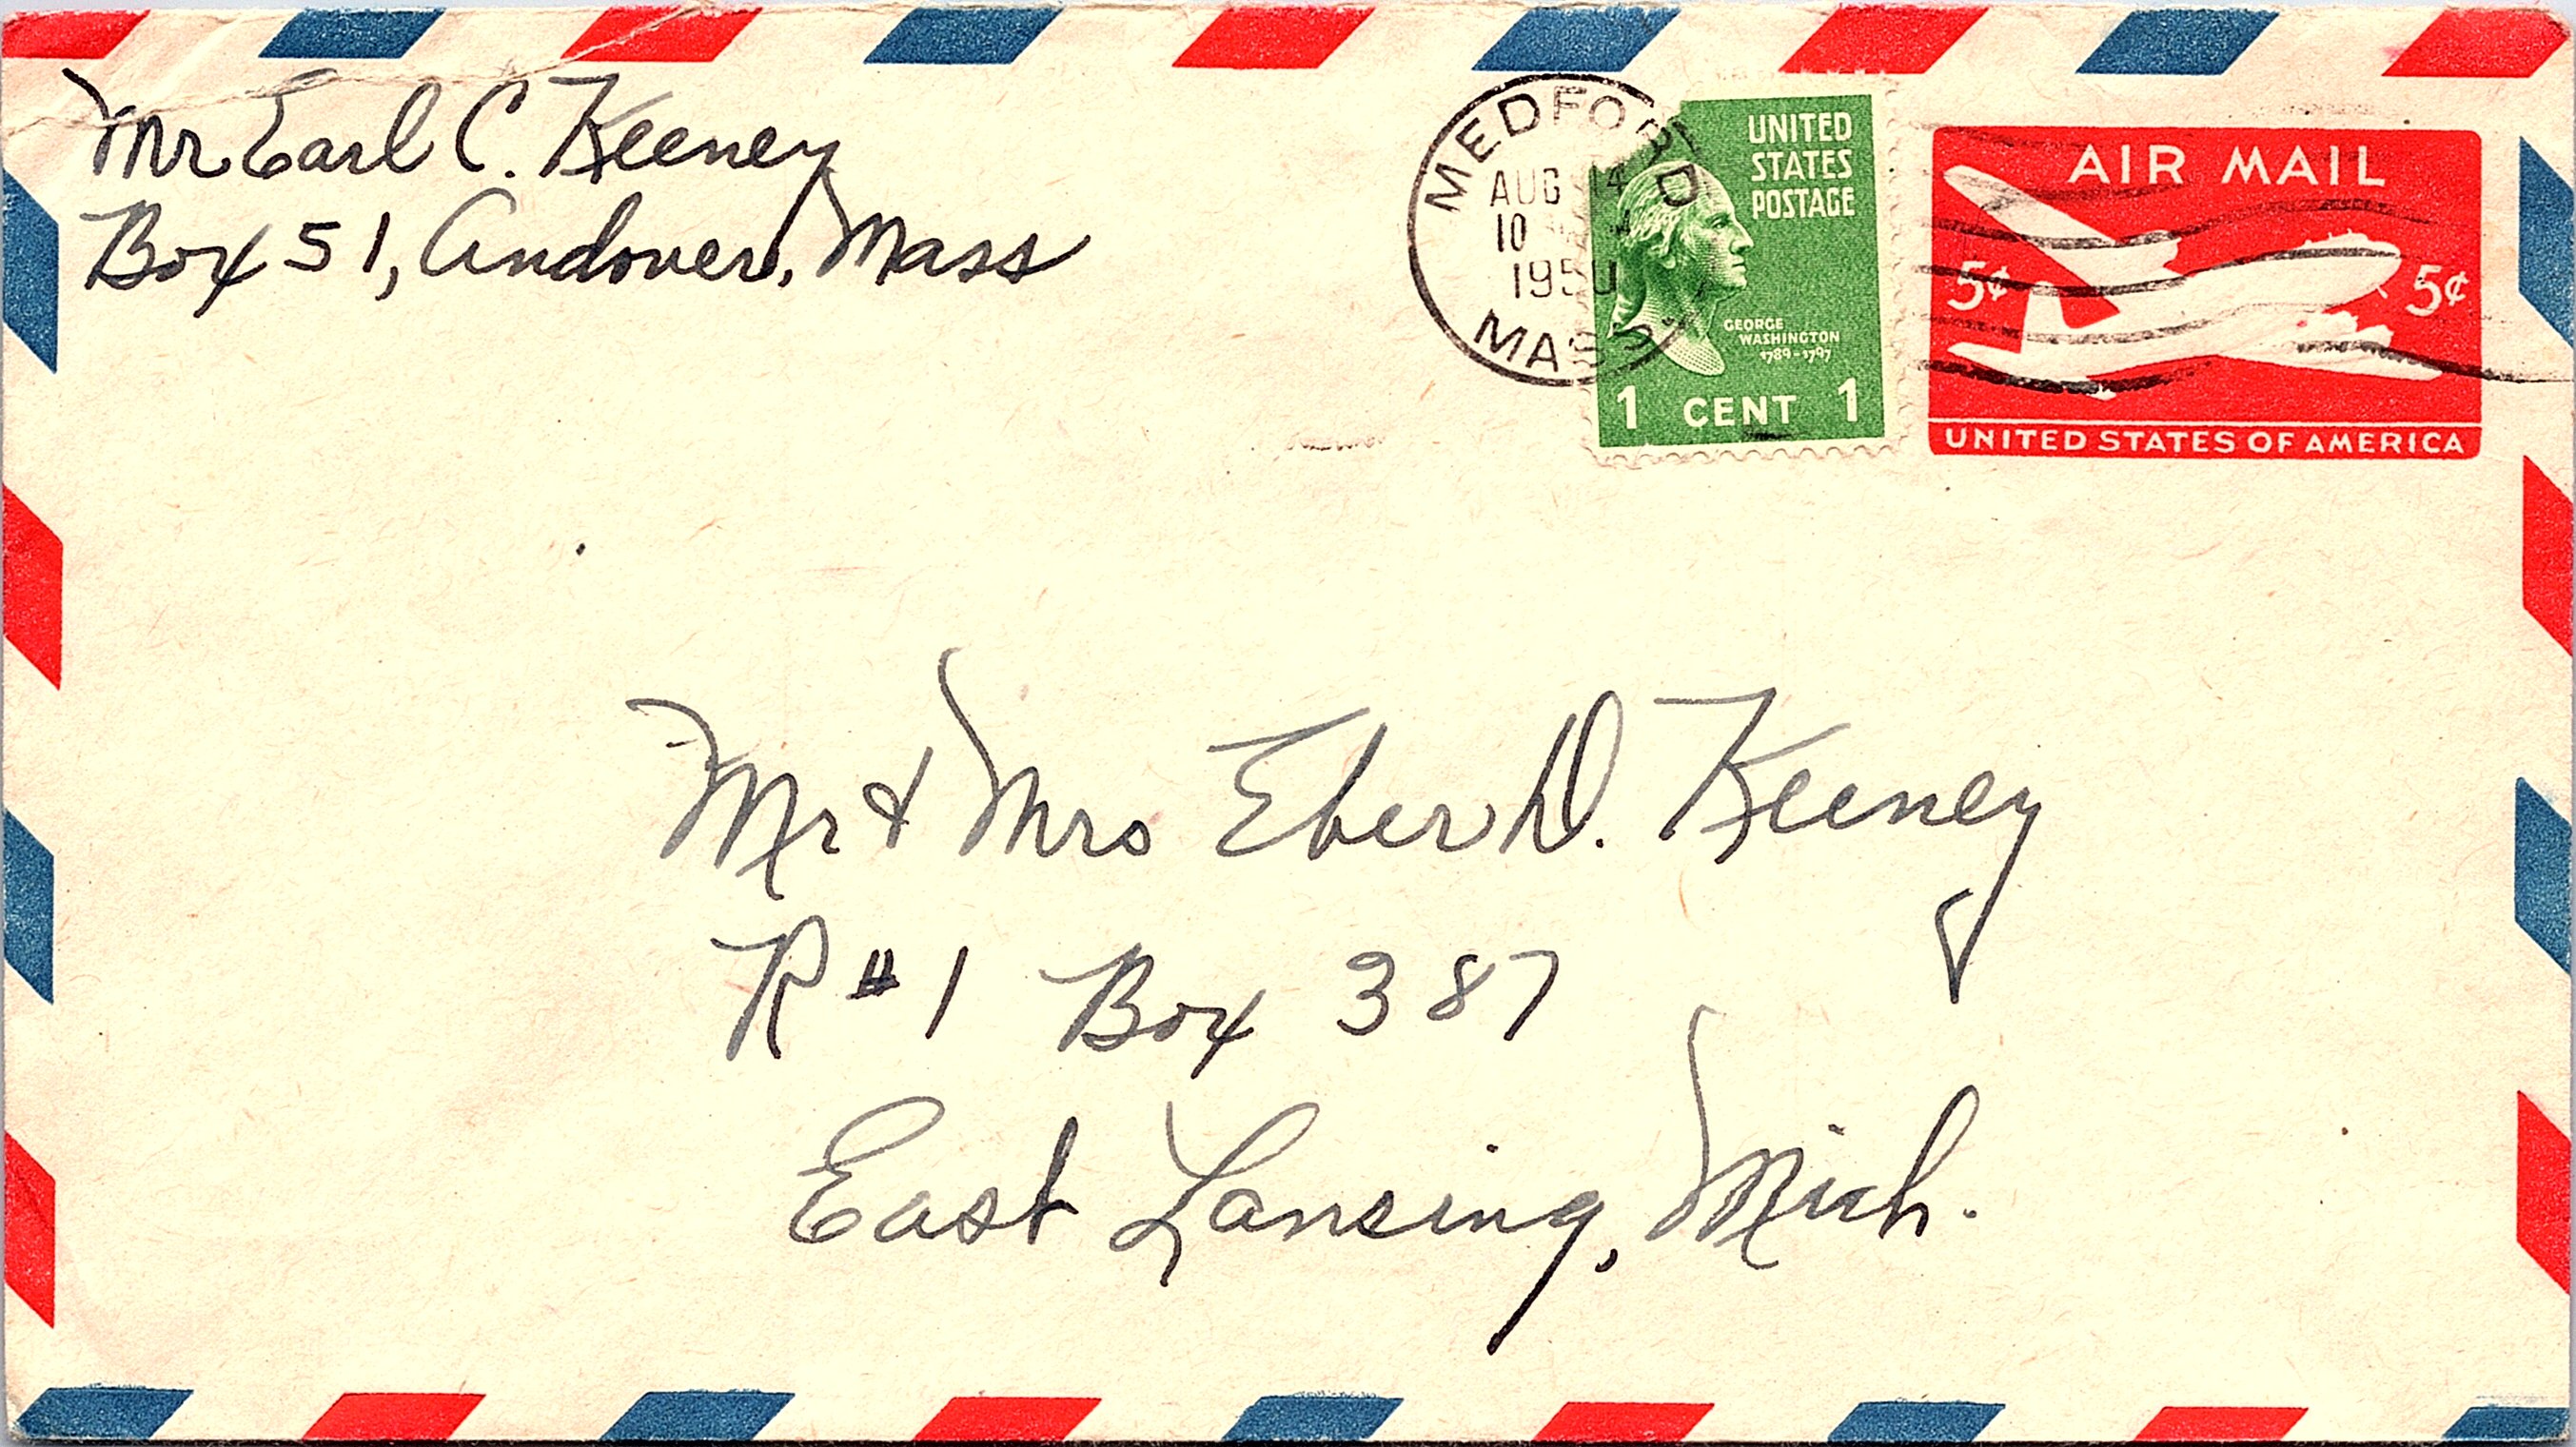 Mr Earl C. Keeney
Box 51, Andover, Mass
MEDFORD
AUG 14
10
1950
MASS
UNITED
STATES
POSTAGE
GEORGE
WASHINGTON
1789-1797
1 CENT 1
AIR MAIL
5¢ 5¢
UNITED STATES OF AMERICA
Mr & Mrs Eber D. Keeney
R #1 Box 387
East Lansing, Mich.